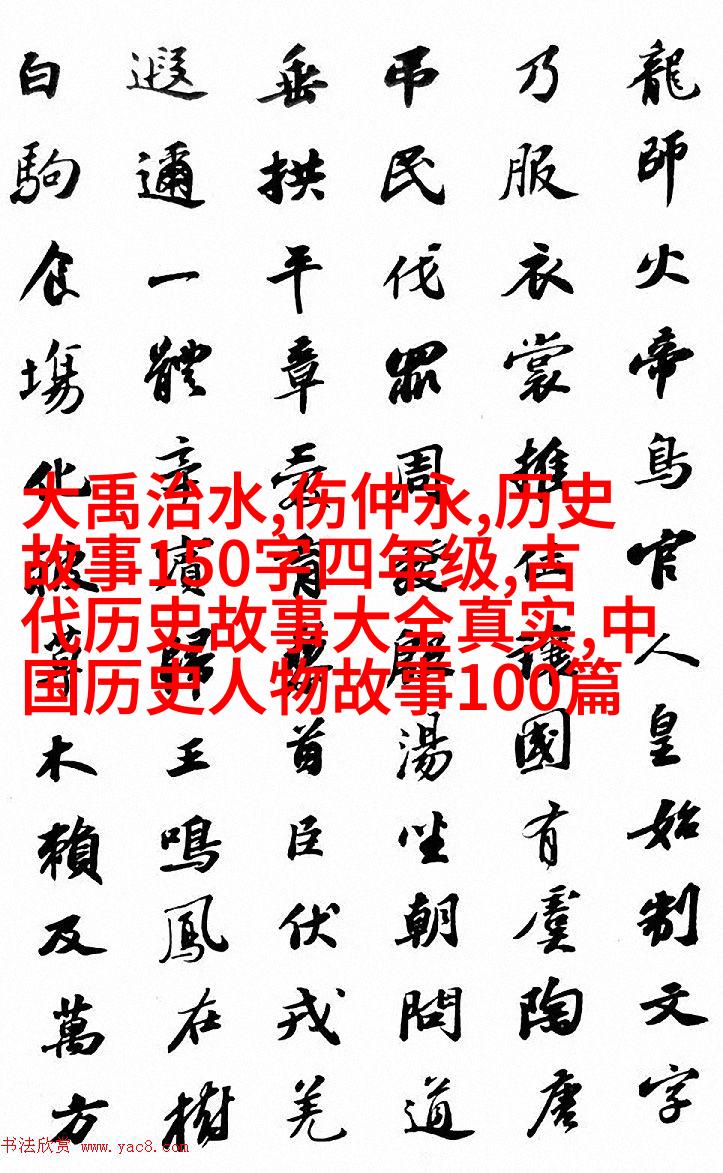 龍師火帝鳥官人皇始制文字
乃服衣裳推位讓國有虞陶唐
吊民伐罪周發殷湯坐朝問道
垂拱平章愛育黎首臣伏戎羌
遐邇一體率賓歸王鳴鳳在樹
白駒食塲化被草木賴及萬方
大禹治水,伤仲永,历史
故事150字四年级,古
代历史故事大全真实,中
国历史人物故事100篇
书法欣赏 www.yac8.com